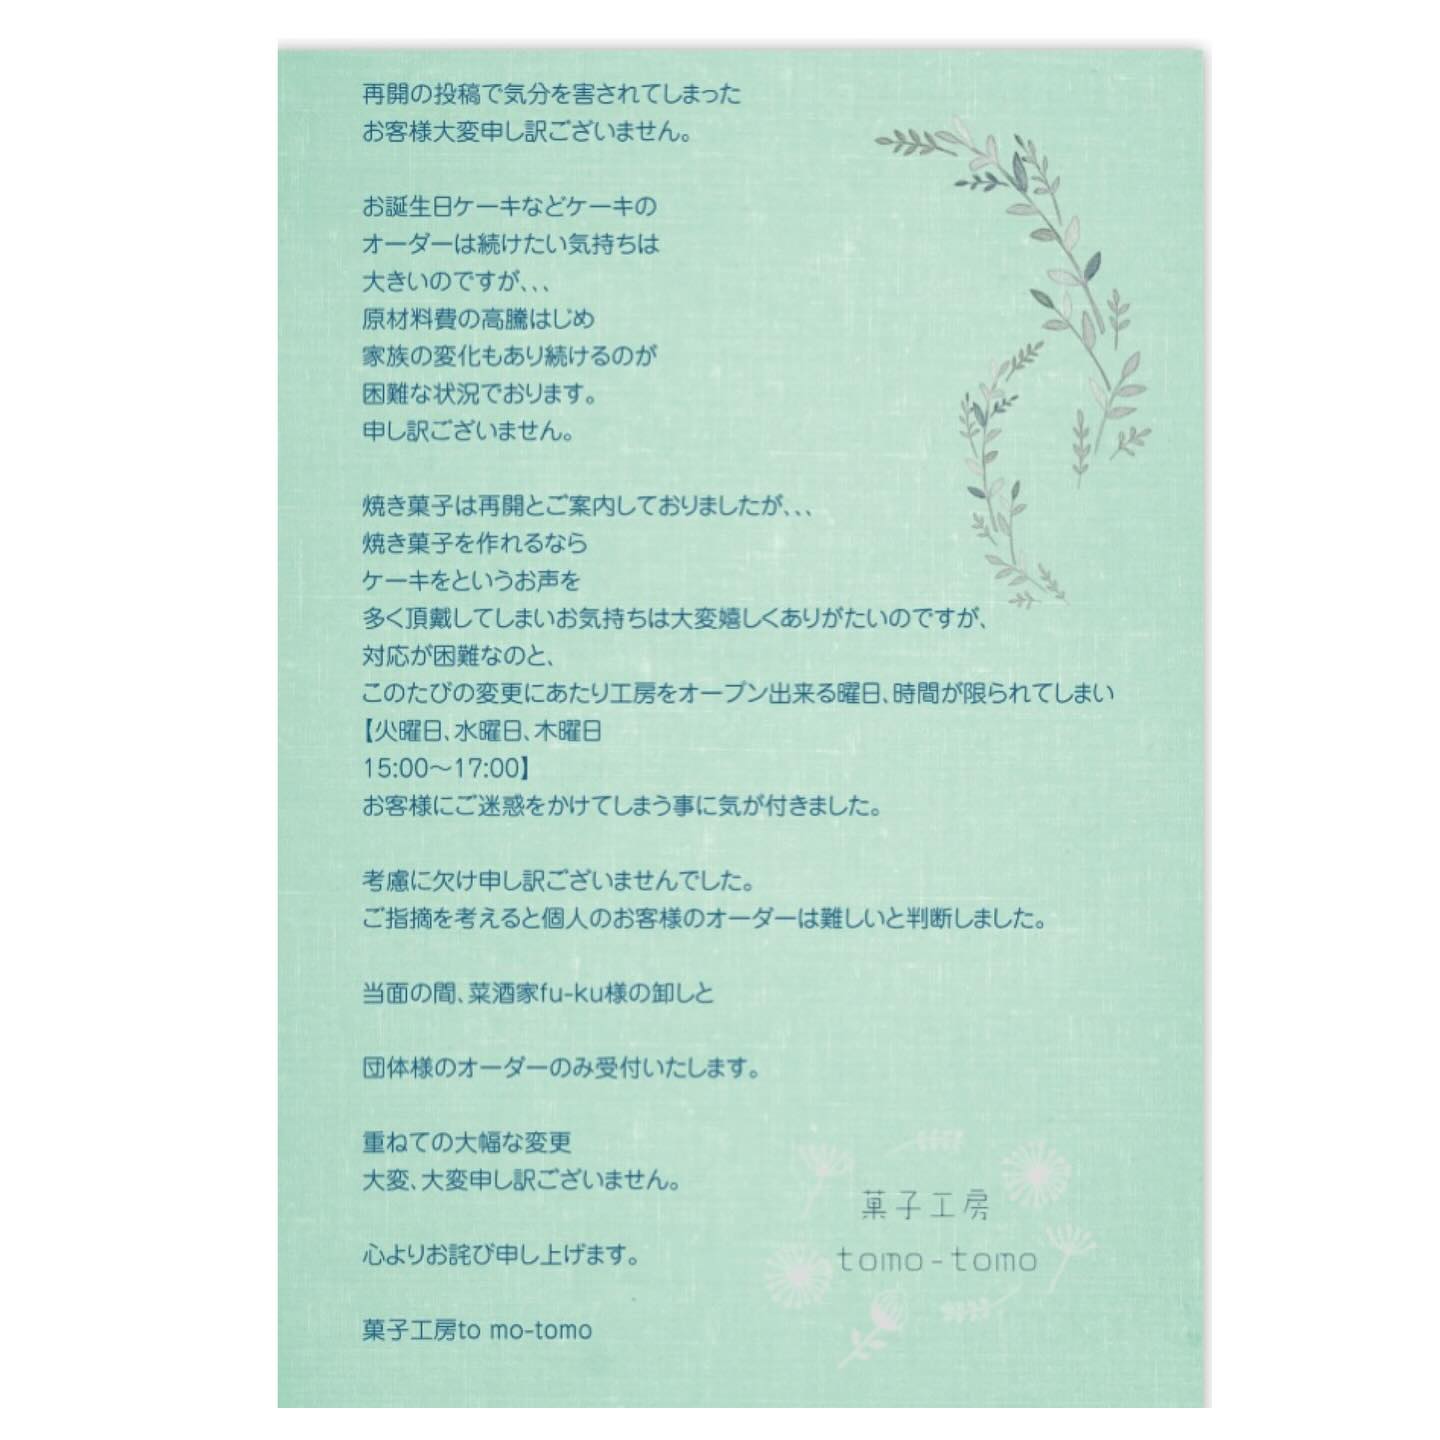 再開の投稿で気分を害されてしまった
お客様大変申し訳ございません。
お誕生日ケーキなどケーキの
オーダーは続けたい気持ちは
大きいのですが、、、
原材料費の高騰はじめ
家族の変化もあり続けるのが
困難な状況でおります。
申し訳ございません。
焼き菓子は再開とご案内しておりましたが、、、
焼き菓子を作れるなら
ケーキをというお声を
多く頂戴してしまいお気持ちは大変嬉しくありがたいのですが、
対応が困難なのと、
このたびの変更にあたり工房をオープン出来る曜日、時間が限られてしまい
【火曜日、水曜日、木曜日
15:00〜17:00】
お客様にご迷惑をかけてしまう事に気が付きました。
考慮に欠け申し訳ございませんでした。
ご指摘を考えると個人のお客様のオーダーは難しいと判断しました。
当面の間、菜酒家fu-ku様の卸しと
団体様のオーダーのみ受付いたします。
重ねての大幅な変更
大変、大変申し訳ございません。
心よりお詫び申し上げます。
菓子工房to mo-tomo
菓子工房
tomo-tomo